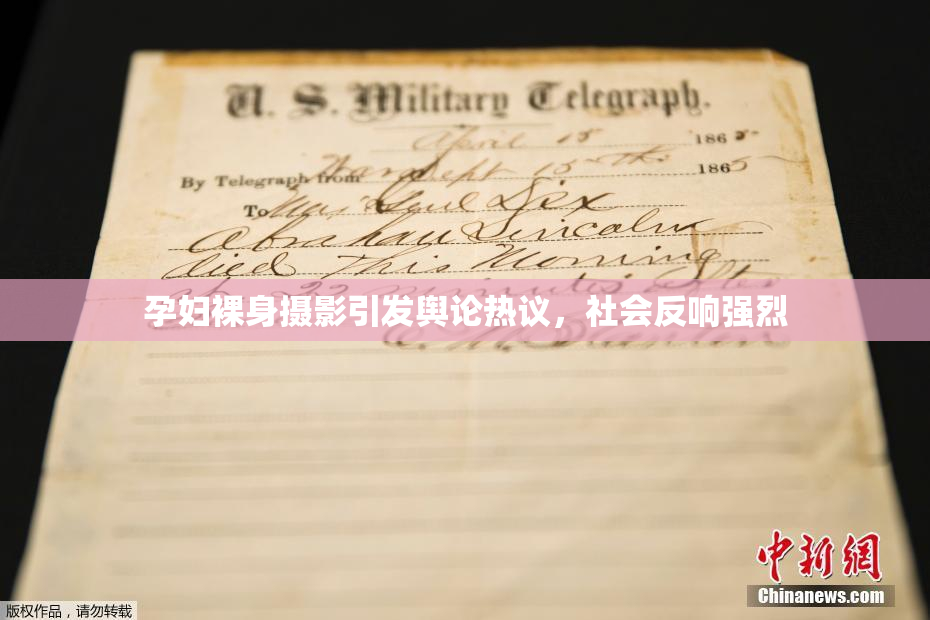 U. S. Military Telegraph.
April 15 1865
By Telegraph from War Dept 15th 1865
To Maj Genl Dix
Abraham Lincoln
died This Morning
at 22 minutes after
孕妇裸身摄影引发舆论热议，社会反响强烈
中新网
Chinanews.com
版权作品，请勿转载